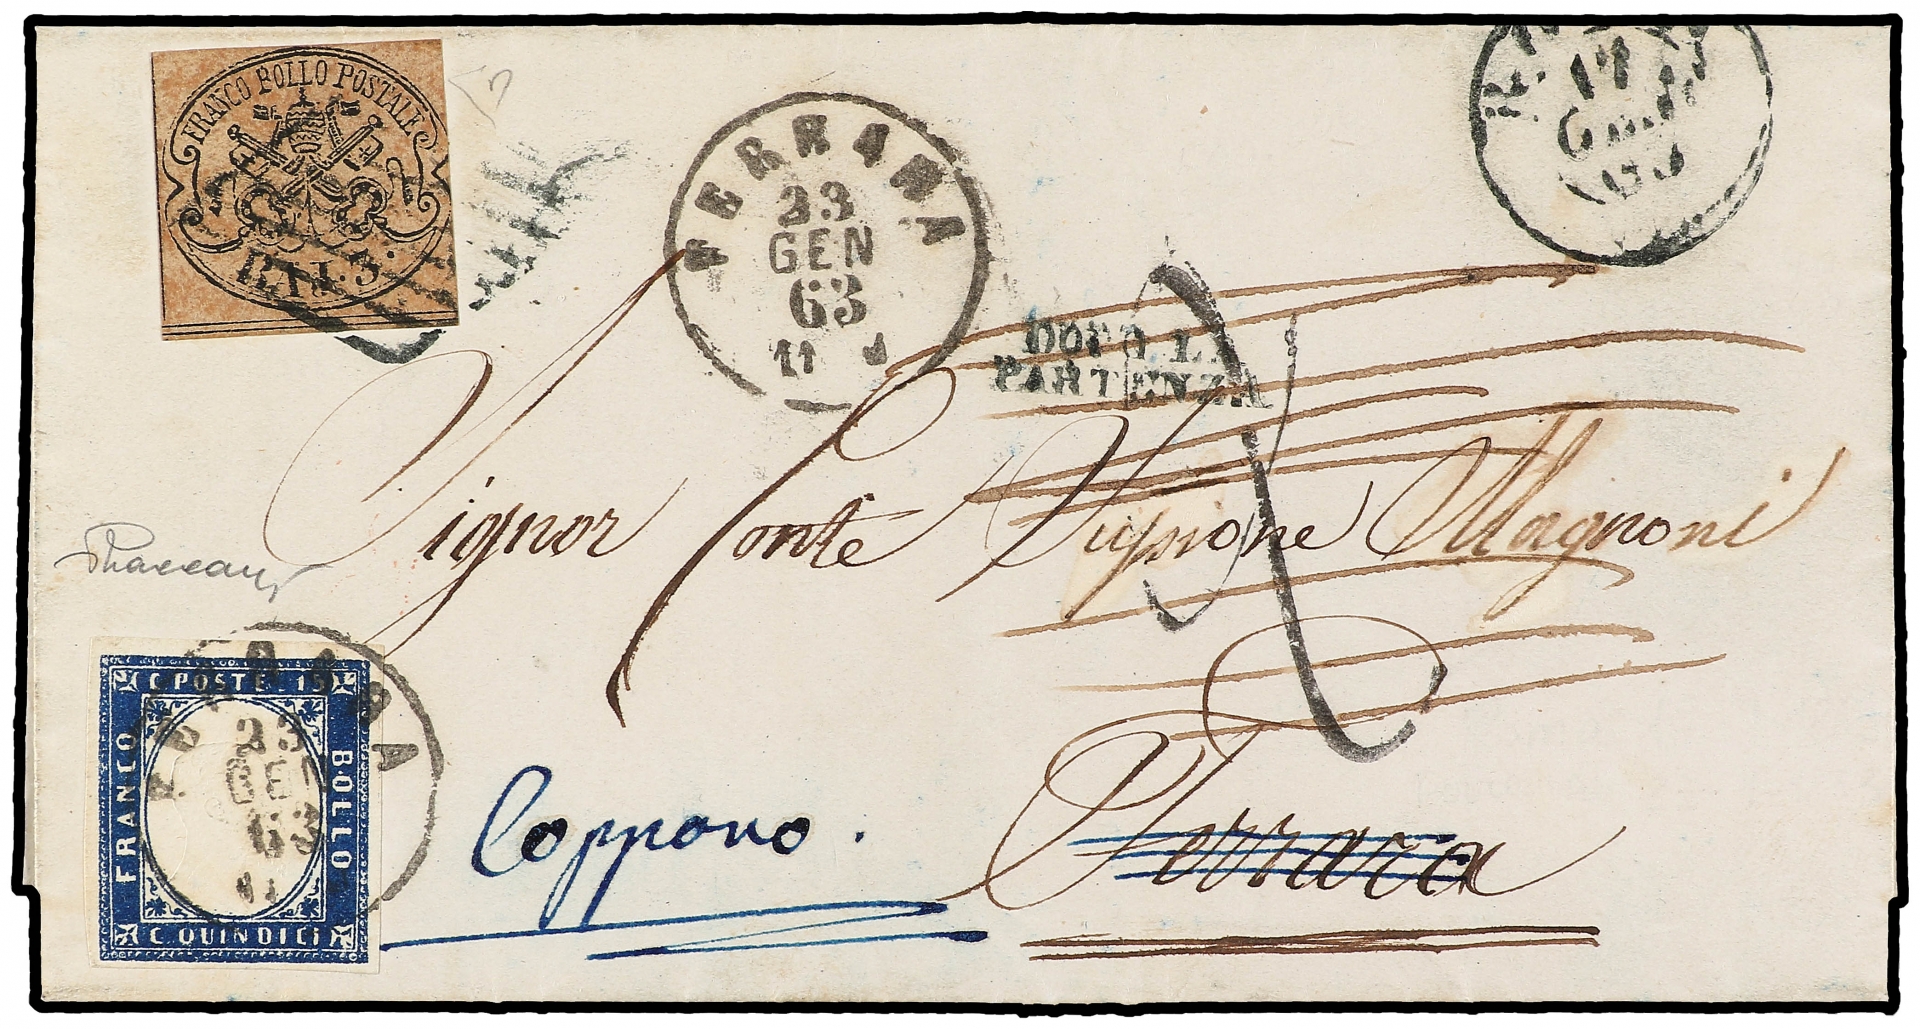 FRANCO BOLLO POSTALE
BAJ. 3.
FERRARA
23
GEN
63
11
17
GEN
63
DOPO LA
PARTENZA
Signor Conte Magnoni
Ferrara
Coppano.
C. POSTE 15
FRANCO
BOLLO
C. QUINDICI
FERRARA
23
GEN
63
11